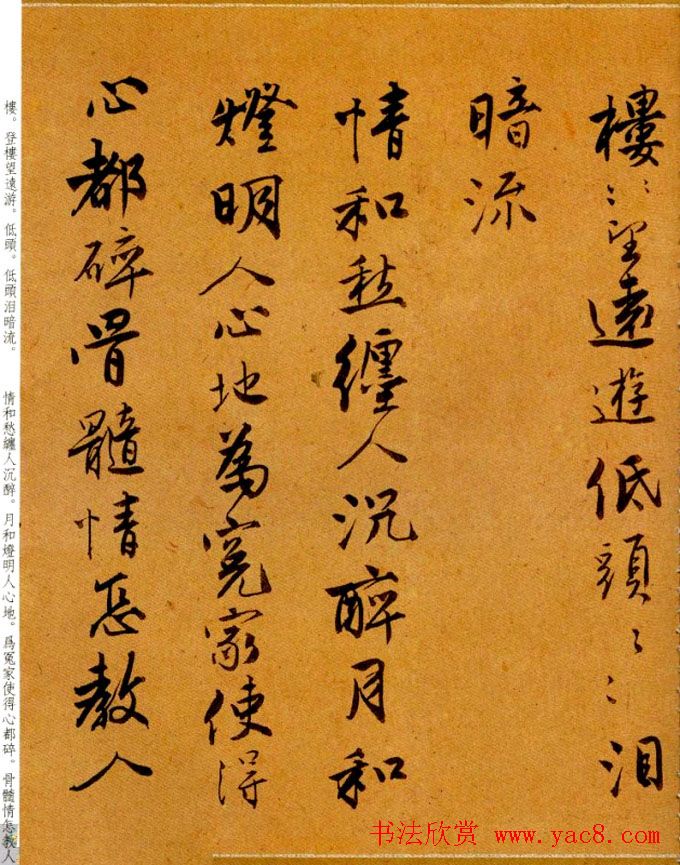 樓〻〻望遠遊低頭〻〻淚
暗流
情和愁纏人沉醉月和
燈明人心地為冤家使得
心都碎骨髓情怎教人
樓。登樓望遠游。低頭。低頭泪暗流。 情和愁纏人沉醉。月和燈明人心地。爲冤家使得心都碎。骨髓情怎教人
书法欣赏 www.yac8.com